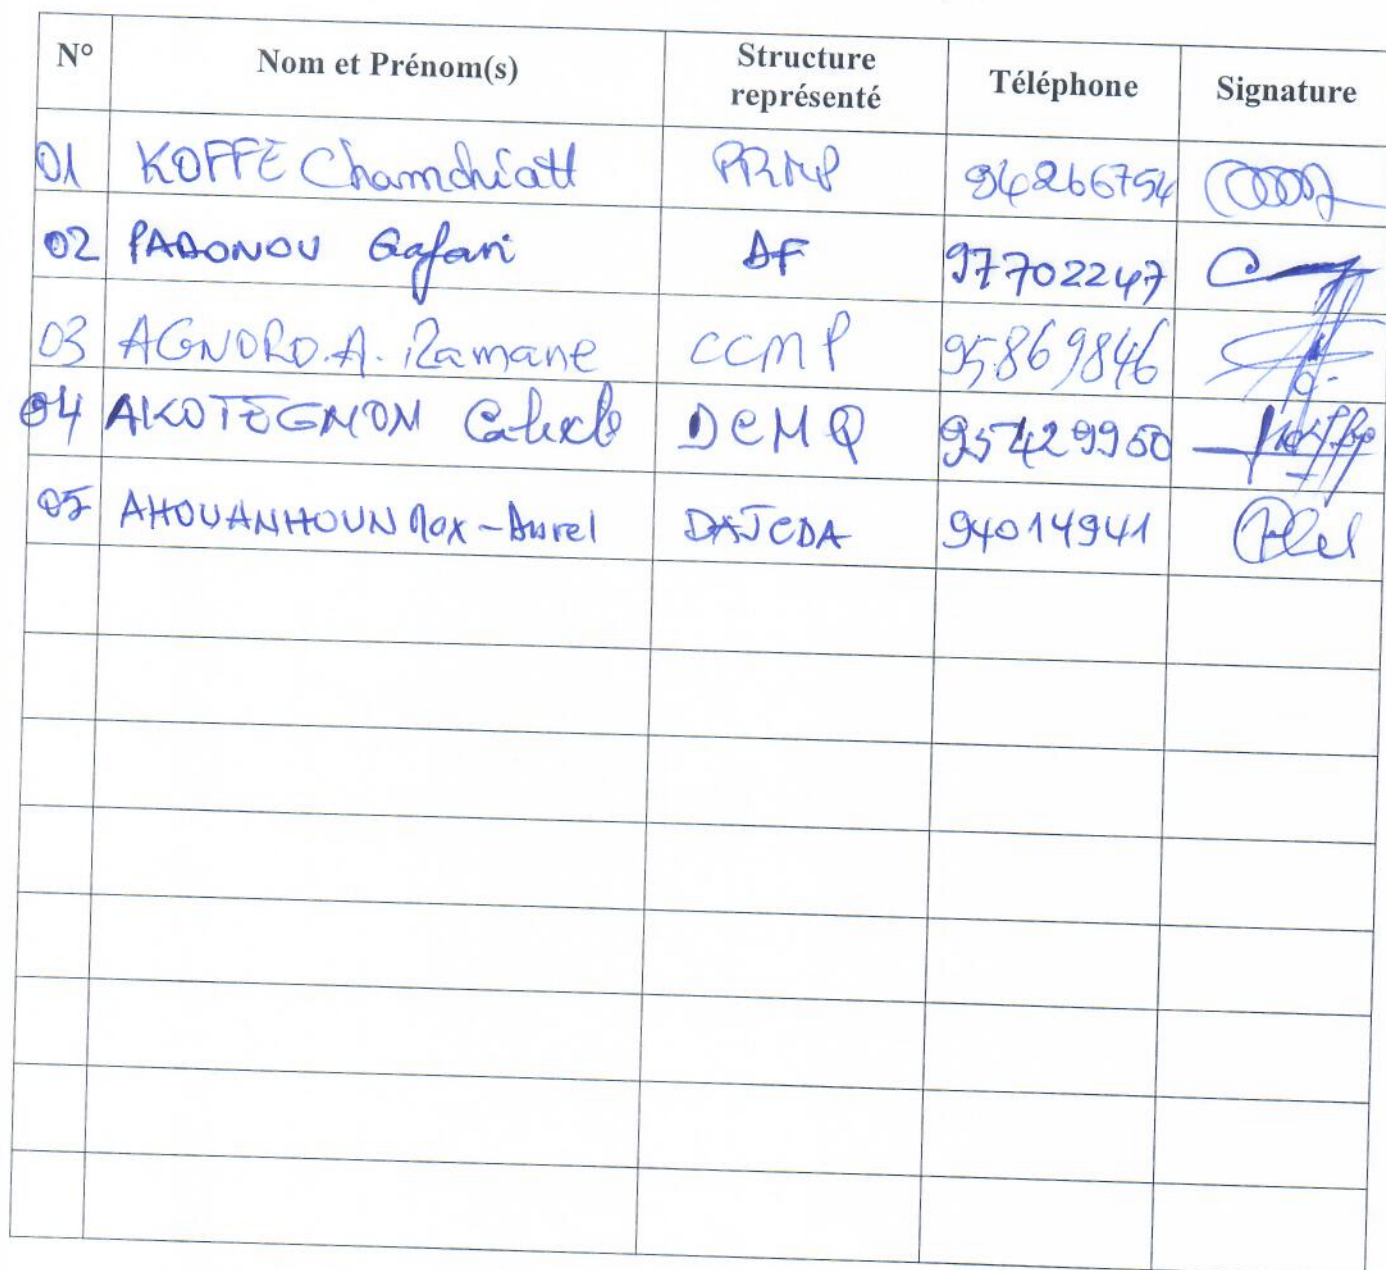 N° Nom et Prénom(s) Structure représenté Téléphone Signature
01 KOFFE Chamchiatt PRMP 94266754
02 PADONOU Gafari DF 97702247
03 AGNORO.A. Ramane CCMP 95869846
04 AKOTEGNON Calixte DCMQ 95429950
05 AHOUANHOUN Max-Aurel DAJCDA 94014941